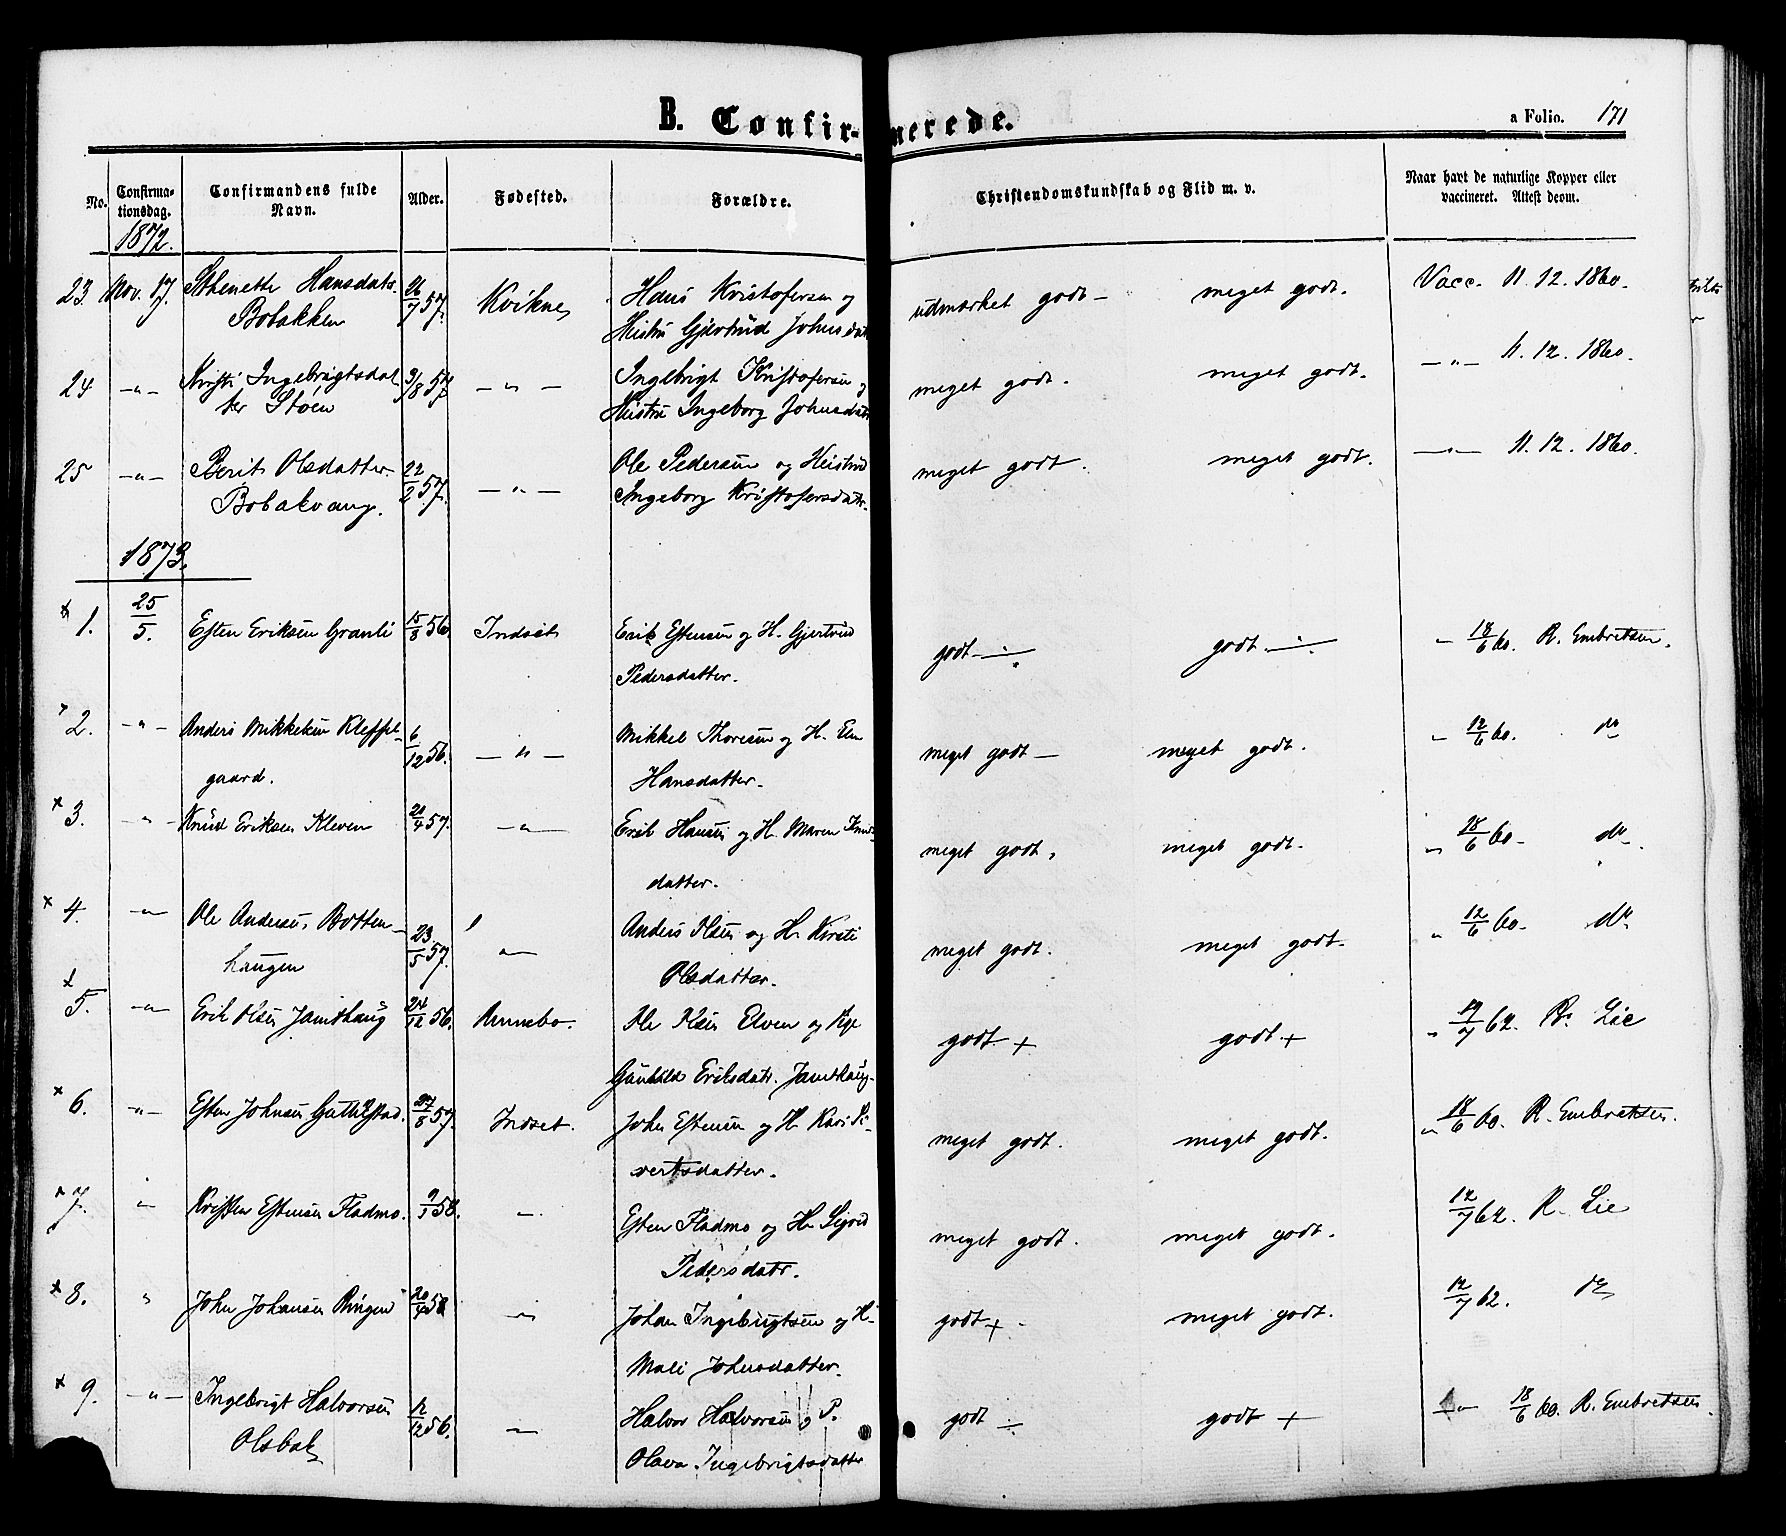 B. Confir-merede.
a Folio. 171
No. Confirma-tionsdag. Confirmandens fulde Navn. Alder. Fødested. Forældre. Christendomskundskab og Flid m. v. Naar havt de naturlige Kopper eller vaccineret. Attest derom.
1872.
23 Nov. 17. Sthenette Hansdatr. 26/7 57. Kvikne Hans Kristofersen og udmærket godt - meget godt. Vacc. 11. 12. 1860.
Bobakken Heistru Gjertrud Johnsdatr
24 -"- Kirsti Ingebrigtsdat 3/8 57 - " - Ingebrigt Kristofersen og meget godt. meget godt. -"- 11. 12. 1860.
ter Stöen Heistru Ingeborg Johnsdatr
25 -"- Berit Olsdatter 22/2 57. - " - Ole Pedersen og Heistru meget godt. meget godt. -"- 11. 12. 1860.
Bobakvang. Ingeborg Kristofersdatr.
1873.
x 1. 25/5. Esten Eriksen Granli 15/8 56. Indset Erik Estensen og H. Gjertrud godt godt " 18/6 60. R. Embretsen.
Pedersdatter.
2. -"- Anders Mikkelsen Kleppe 6/12 56. - " - Mikkel Thoresen og H. Eli meget godt - meget godt. " 12/6 60. do
gaard. Hansdatter.
x 3. " Knud Eriksen Kleven 21/4 57. -"- Erik Hansen og H. Maren Knuds meget godt, meget godt. " 18/6 60. do
datter.
x 4. -"- Ole Andersen Botten 23/5 57. -"- Anders Olsen og H. Kirsti meget godt. meget godt. " 12/6 60. do
haugen Olsdatter.
x 5. -"- Erik Olsen Jamthaug 24/12 56. Rennebo. Ole Olsen Elven og Pige godt + godt + " 12/7 62. R. Lie
Gunhild Eriksdatr. Jamthaug.
x 6. -"- Esten Johnsen Guthilstad. 27/8 57. Indset. John Estensen og H. Kari Si meget godt. meget godt. " 18/6 60. R. Embretsen.
vertsdatter.
7. " Kristen Estensen Fladmo. 9/1 58. " Esten Fladmo og H. Sigrid meget godt. meget godt. 12/7 62. R. Lie
Pedersdatr.
x 8. " John Johansen Ringen 20/4 58 " Johan Ingebrigtsen og H. godt + meget godt. 12/7 62. do
Mali Johnsdatter.
x 9. -"- Ingebrigt Halvorsen 12/12 56. " Halvor Halvorsen og P. godt ÷ godt + -"- 18/6 60. R. Embretsen.
Olsbak Olava Ingebrigtsdatter